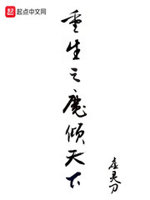 起点中文网
重生之魔倾天下